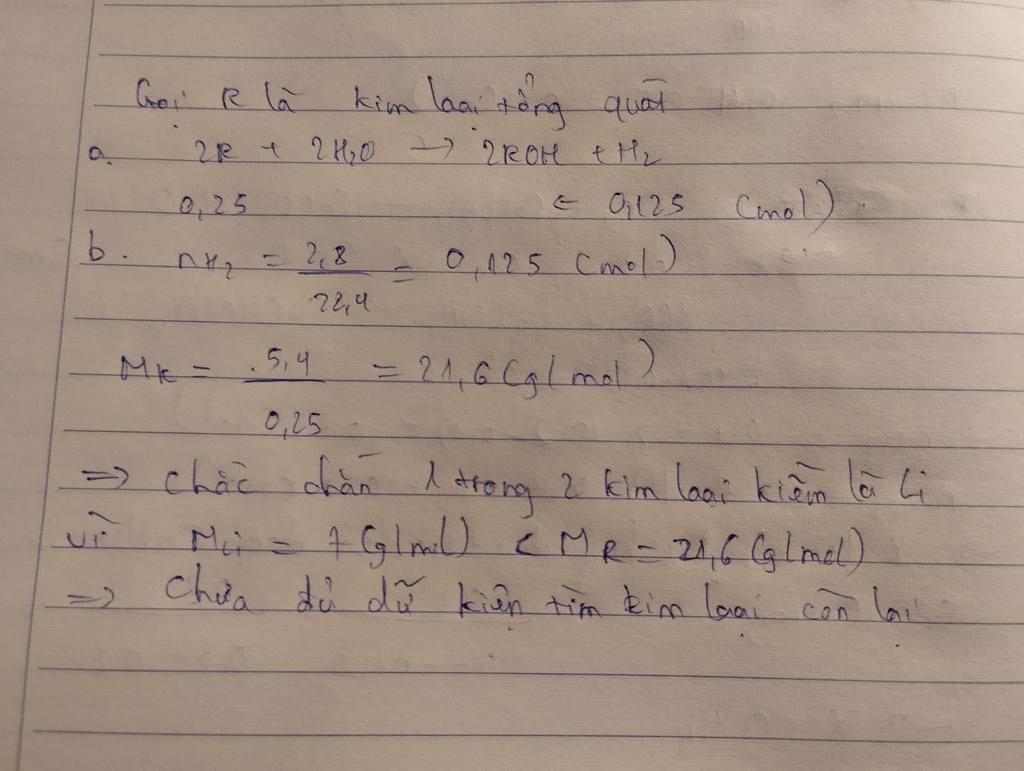 Gọi R là kim loại tổng quát
a. 2R + 2H₂O → 2ROH + H₂
0,25 ← 0,125 (mol)
b. nH₂ = 2,8 / 22,4 = 0,125 (mol)
MR = 5,4 / 0,25 = 21,6 (g/mol)
=> chắc chắn 1 trong 2 kim loại kiềm là Li
vì MLi = 7 (g/mol) < MR = 21,6 (g/mol)
=> Chưa đủ dữ kiện tìm kim loại còn lại